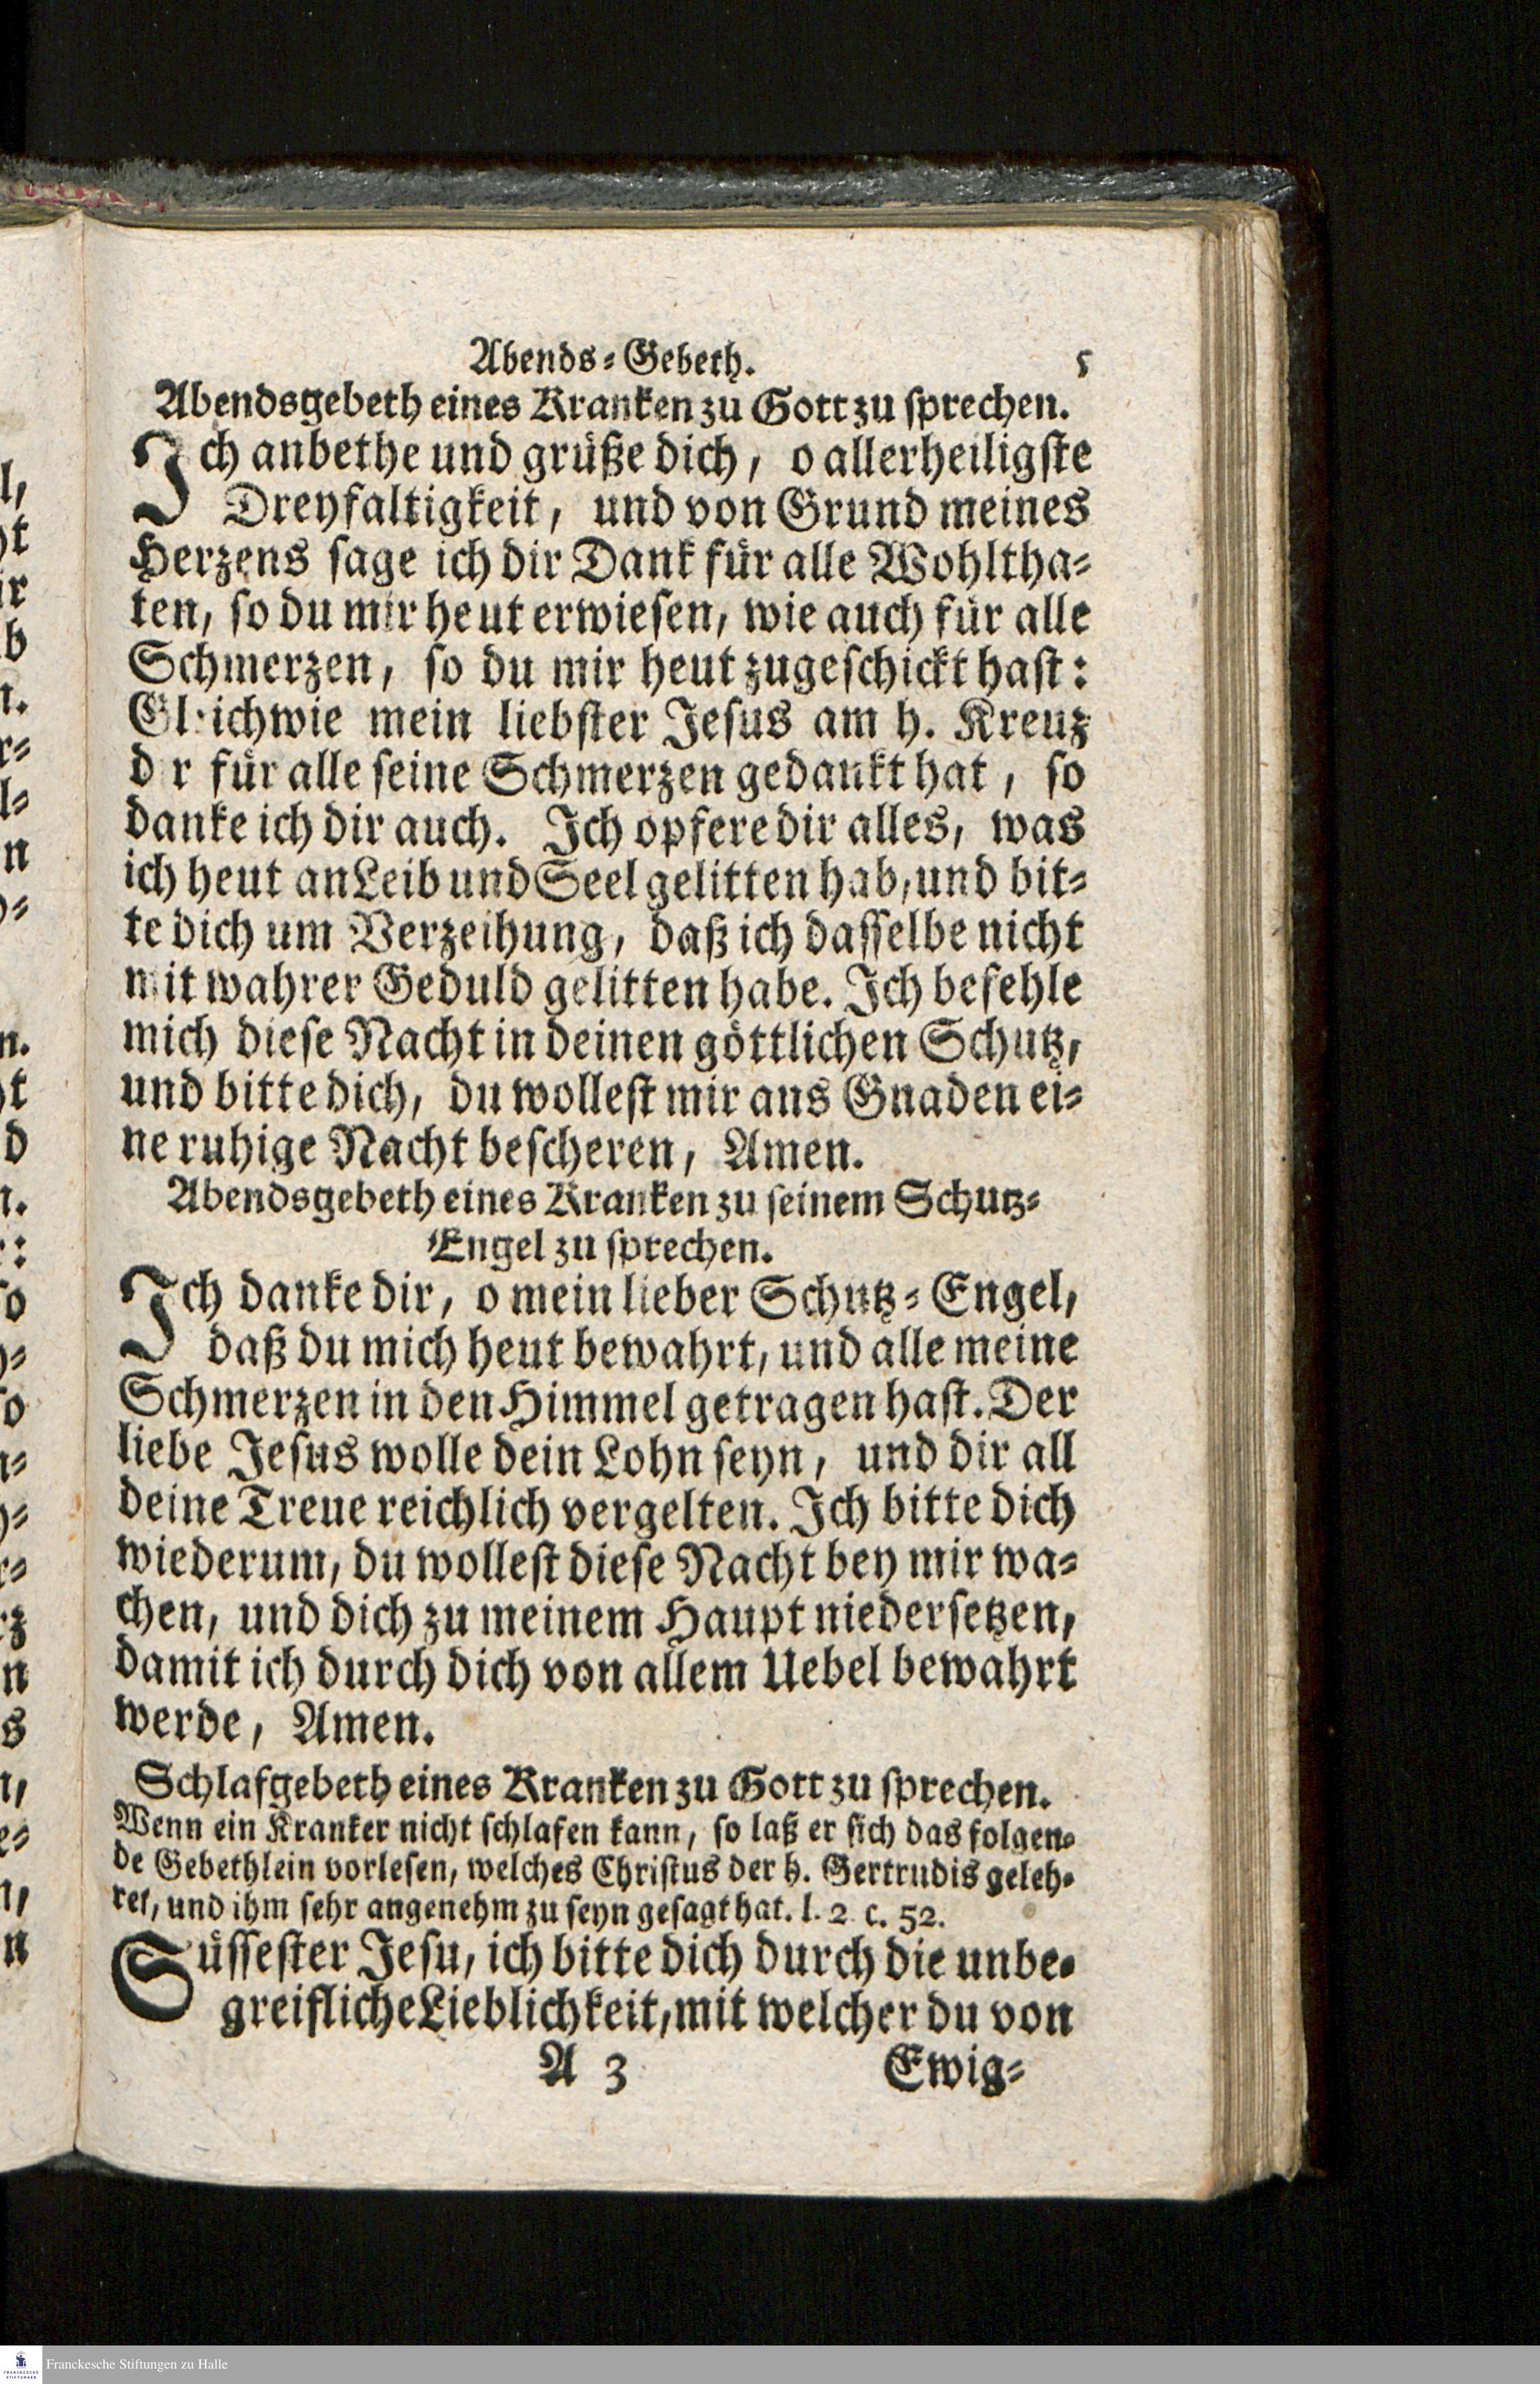 Abends-Gebeth. 5
Abendsgebeth eines Kranken zu Gott zu sprechen.
Ich anbethe und grüße dich, o allerheiligste
Dreyfaltigkeit, und von Grund meines
Herzens sage ich dir Dank für alle Wohltha-
ten, so du mir heut erwiesen, wie auch für alle
Schmerzen, so du mir heut zugeschickt hast:
Gleichwie mein liebster Jesus am h. Kreuz
dir für alle seine Schmerzen gedankt hat, so
danke ich dir auch. Ich opfere dir alles, was
ich heut an Leib und Seel gelitten hab, und bit-
te dich um Verzeihung, daß ich dasselbe nicht
mit wahrer Geduld gelitten habe. Ich befehle
mich diese Nacht in deinen göttlichen Schutz,
und bitte dich, du wollest mir aus Gnaden ei-
ne ruhige Nacht bescheren, Amen.
Abendsgebeth eines Kranken zu seinem Schutz-
Engel zu sprechen.
Ich danke dir, o mein lieber Schutz-Engel,
daß du mich heut bewahrt, und alle meine
Schmerzen in den Himmel getragen hast. Der
liebe Jesus wolle dein Lohn seyn, und dir all
deine Treue reichlich vergelten. Ich bitte dich
wiederum, du wollest diese Nacht bey mir wa-
chen, und dich zu meinem Haupt niedersetzen,
damit ich durch dich von allem Uebel bewahrt
werde, Amen.
Schlafgebeth eines Kranken zu Gott zu sprechen.
Wenn ein Kranker nicht schlafen kann, so laß er sich das folgen-
de Gebethlein vorlesen, welches Christus der h. Gertrudis geleh-
ret, und ihm sehr angenehm zu seyn gesagt hat. l. 2. c. 52.
Süssester Jesu, ich bitte dich durch die unbe-
greifliche Lieblichkeit, mit welcher du von
A 3 Ewig-
Franckesche Stiftungen zu Halle